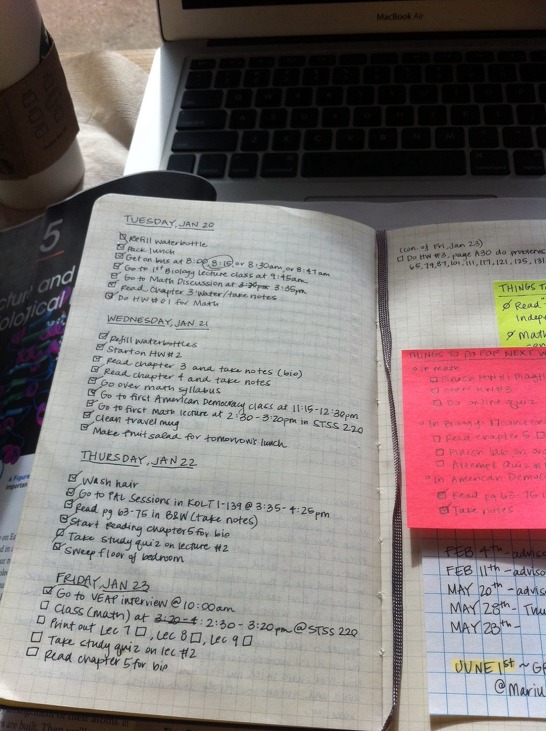 MacBook Air
5
TUESDAY, JAN 20
Refill waterbottle
Pack lunch
Get on bus at 8:00, 8:15 or 8:30am, or 8:47am
Go to 1st Biology lecture class at 9:45am
Go to Math Discussion at 3:35pm
Read Chapter 3 Water/take notes
Do HW #01 for Math
WEDNESDAY, JAN 21
Refill waterbottles
Start on HW #2
Read chapter 3 and take notes (bio)
Read chapter 4 and take notes
Go over math syllabus
Go to first American Democracy class at 11:15-12:30pm
Go to first math lecture at 2:30-3:20pm in STSS 220
Clean travel mug
Make fruit salad for tomorrow's lunch
THURSDAY, JAN 22
Wash hair
Go to PAL Sessions in KOLT 1-139 @ 3:35-4:25pm
Read pg 63-75 in B&W (take notes)
Start reading chapter 5 for bio
Take study quiz on lecture #2
Sweep floor of bedroom
FRIDAY, JAN 23
Go to VEAP interview @ 10:00am
Class (math) at 3:20-4: 2:30-3:20pm @ STSS 220
Print out Lec 7, Lec 8, Lec 9
Take study quiz on lec #2
Read chapter 5 for bio
(con. of Fri, Jan 23)
Do HW #3, page A30 do problems
65, 79, 87, 101, 111, 117, 121, 125, 131
THINGS T
Read
Indep
Math
THINGS TO DO FOR NEXT W
In math
HW #3
Do online quiz
Read chapter 5
Attempt Quiz
In American Democ
Read pg 63-75 in
Take notes
FEB 4th - advis
FEB 11th - adviso
MAY 20th - adviso
MAY 28th - Thu
MAY 28th -
JUNE 1st ~ G
@ Mariu